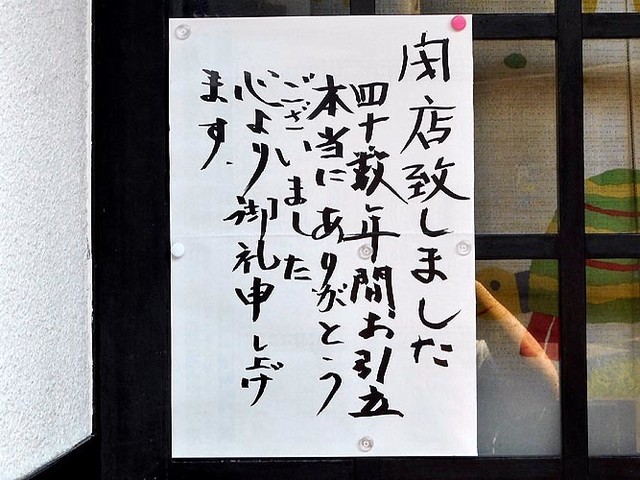 閉店致しました
四十数年間お引立
本当にありがとう
ございました
心より御礼申し上げ
ます.